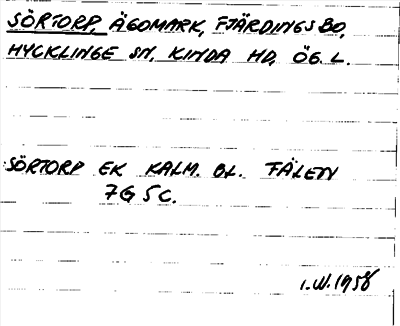 SÖRTORP, ÄGOMARK, FJÄRDINGSBO,
HYCKLINGE SN, KINDA HD, ÖG. L.
SÖRTORP EK KALM. BL. FÅLEN
7G 5C.
I.W. 1958